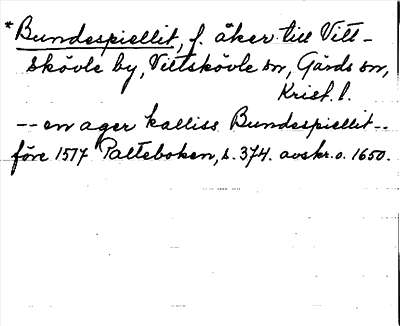 *Bundespiellit, f. åker till Vitt-
skövle by, Vittskövle sn, Gärds sn,
Krist. l.
-- en ager kalliss Bundespiellit--
före 1517 Palteboken, s. 374. avskr. o. 1650.